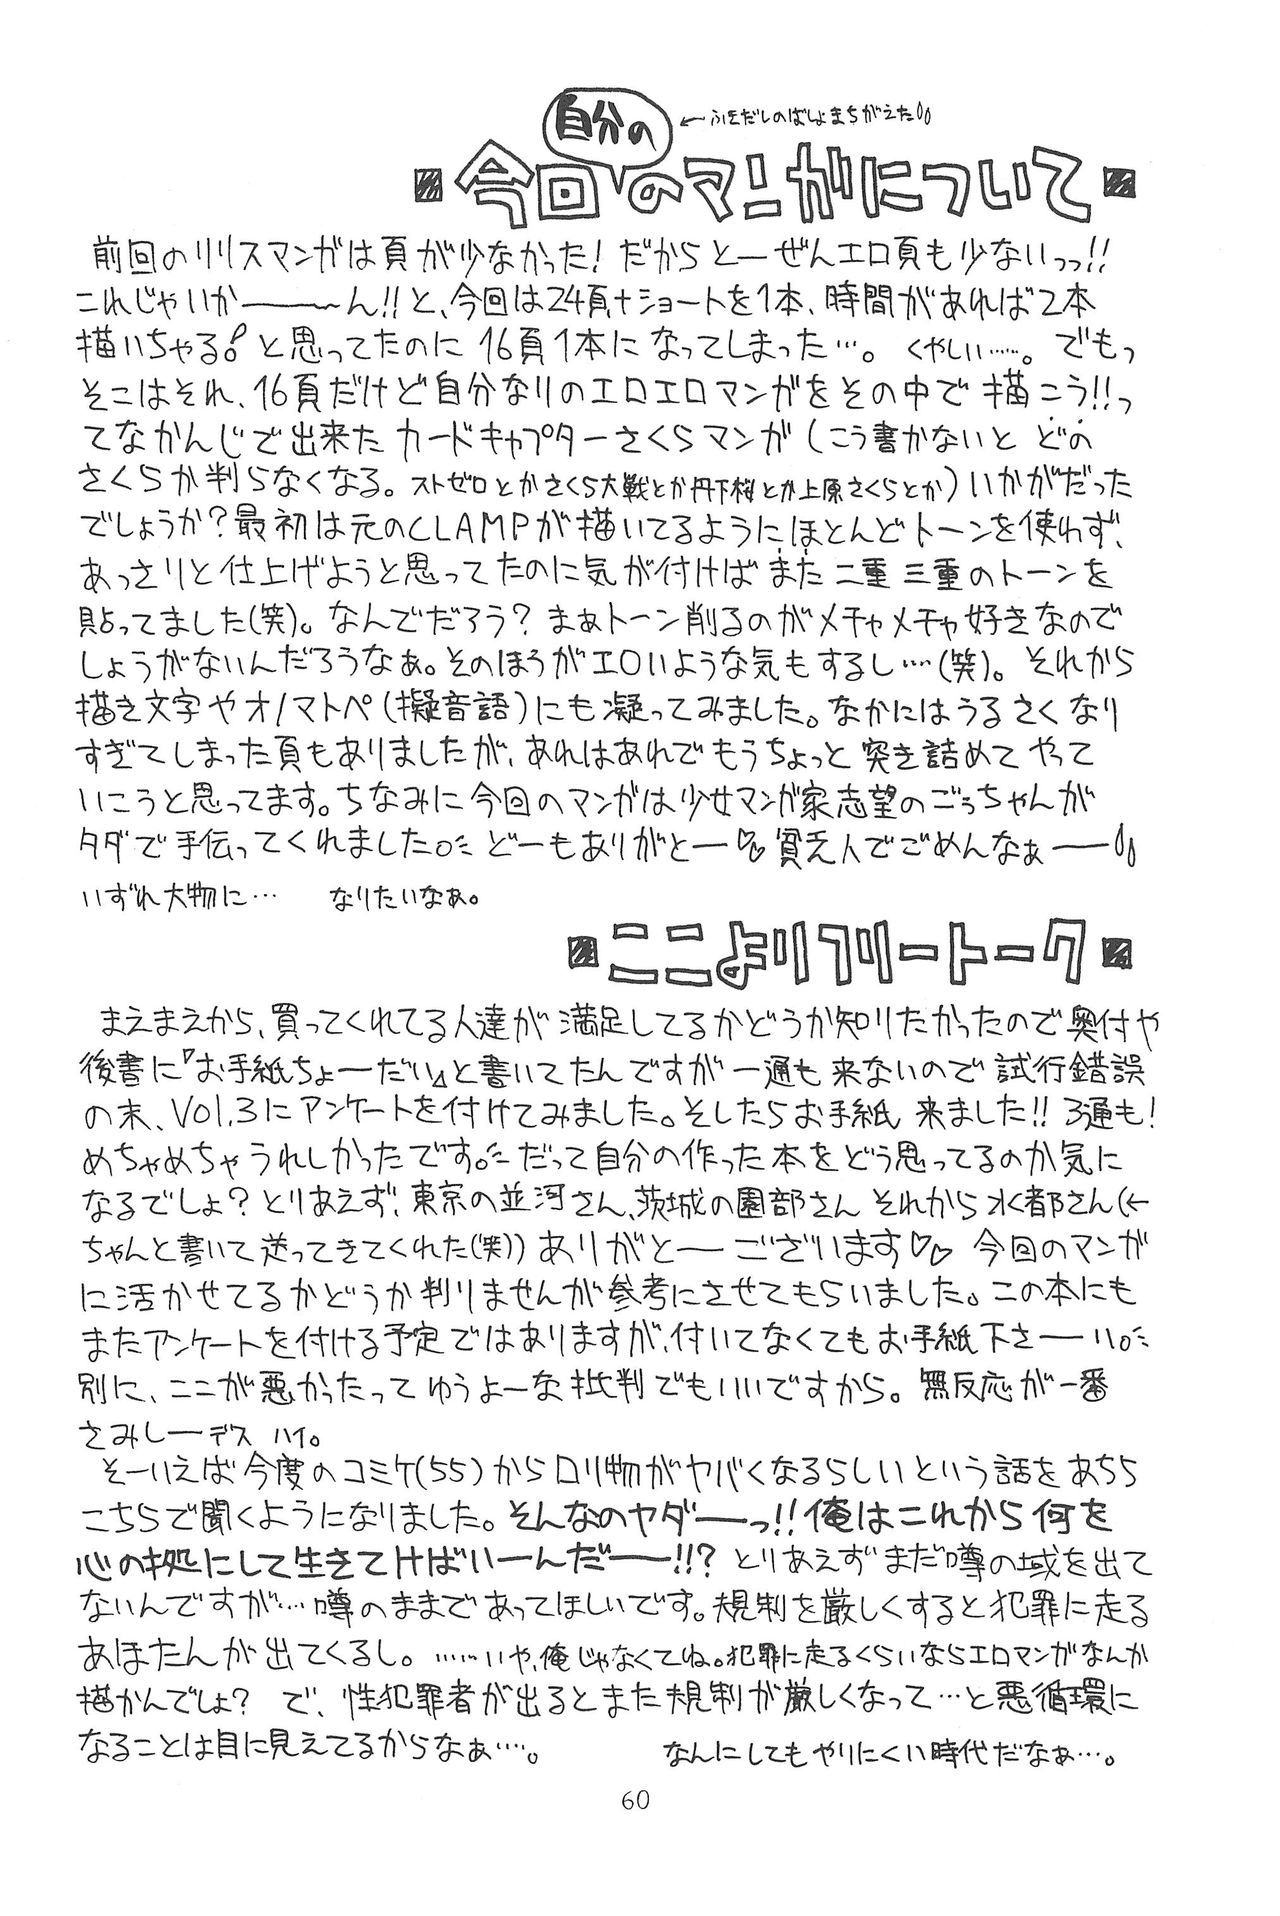 自分の ←ふきだしのばしょまちがえた
今回のマンガについて
前回のリリスマンガは頁が少なかった!だからとーぜんエロ頁も少ないっっ!!
これじゃいか――〜ん!!と、今回は24頁+ショートを1本、時間があれば2本
描いちゃる!と思ってたのに16頁1本になってしまった…。くやしい……。でもっ
そこはそれ、16頁だけど自分なりのエロエロマンガをその中で描こう!!っ
てなかんじで出来たカードキャプターさくらマンガ(こう書かないとどの
さくらか判らなくなる。ストゼロとかさくら大戦とか丹下桜とか上原さくらとか)いかがだった
でしょうか?最初は元のCLAMPが描いてるようにほとんどトーンを使わず、
あっさりと仕上げようと思ってたのに気が付けばまた二重三重のトーンを
貼ってました(笑)。なんでだろう?まぁトーン削るのがメチャメチャ好きなので
しょうがないんだろうなぁ。そのほうがエロいような気もするし…(笑)。それから
描き文字やオノマトペ(擬音語)にも凝ってみました。なかにはうるさくなり
すぎてしまった頁もありましたが、あれはあれでもうちょっと突き詰めてやって
いこうと思ってます。ちなみに今回のマンガは少女マンガ家志望のごぅちゃんが
タダで手伝ってくれました。どーもありがとー♡♡貧乏人でごめんなぁ――
いずれ大物に… なりたいなぁ。
ここよりフリートーク
まえまえから、買ってくれてる人達が満足してるかどうか知りたかったので奥付や
後書に『お手紙ちょーだい』と書いてたんですが一通も来ないので試行錯誤
の末、Vol.3にアンケートを付けてみました。そしたらお手紙来ました!!3通も!
めちゃめちゃうれしかったです。だって自分の作った本をどう思ってるのか気に
なるでしょ?とりあえず、東京の並河さん、茨城の園部さんそれから水都さん(←
ちゃんと書いて送ってきてくれた(笑))ありがとーございます♡♡今回のマンガ
に活かせてるかどうか判りませんが参考にさせてもらいました。この本にも
またアンケートを付ける予定ではありますが、付いてなくてもお手紙下さーい。
別に、ここが悪かったってゆうよーな批判でもいいですから。無反応が一番
さみしーデス ハイ。
そーいえば今度のコミケ(55)からロリ物がヤバくなるらしいという話をあちら
こちらで聞くようになりました。そんなのヤダーっ!!俺はこれから何を
心の拠処にして生きてけばいーんだー!!?とりあえずまだ噂の域を出て
ないんですが…噂のままであってほしいです。規制を厳しくすると犯罪に走る
あほたんが出てくるし。……いや、俺じゃなくてね。犯罪に走るくらいならエロマンガなんか
描かんでしょ?で、性犯罪者が出るとまた規制が厳しくなって…と悪循環に
なることは目に見えてるからなぁ…。 なんにしてもやりにくい時代だなぁ…。
60